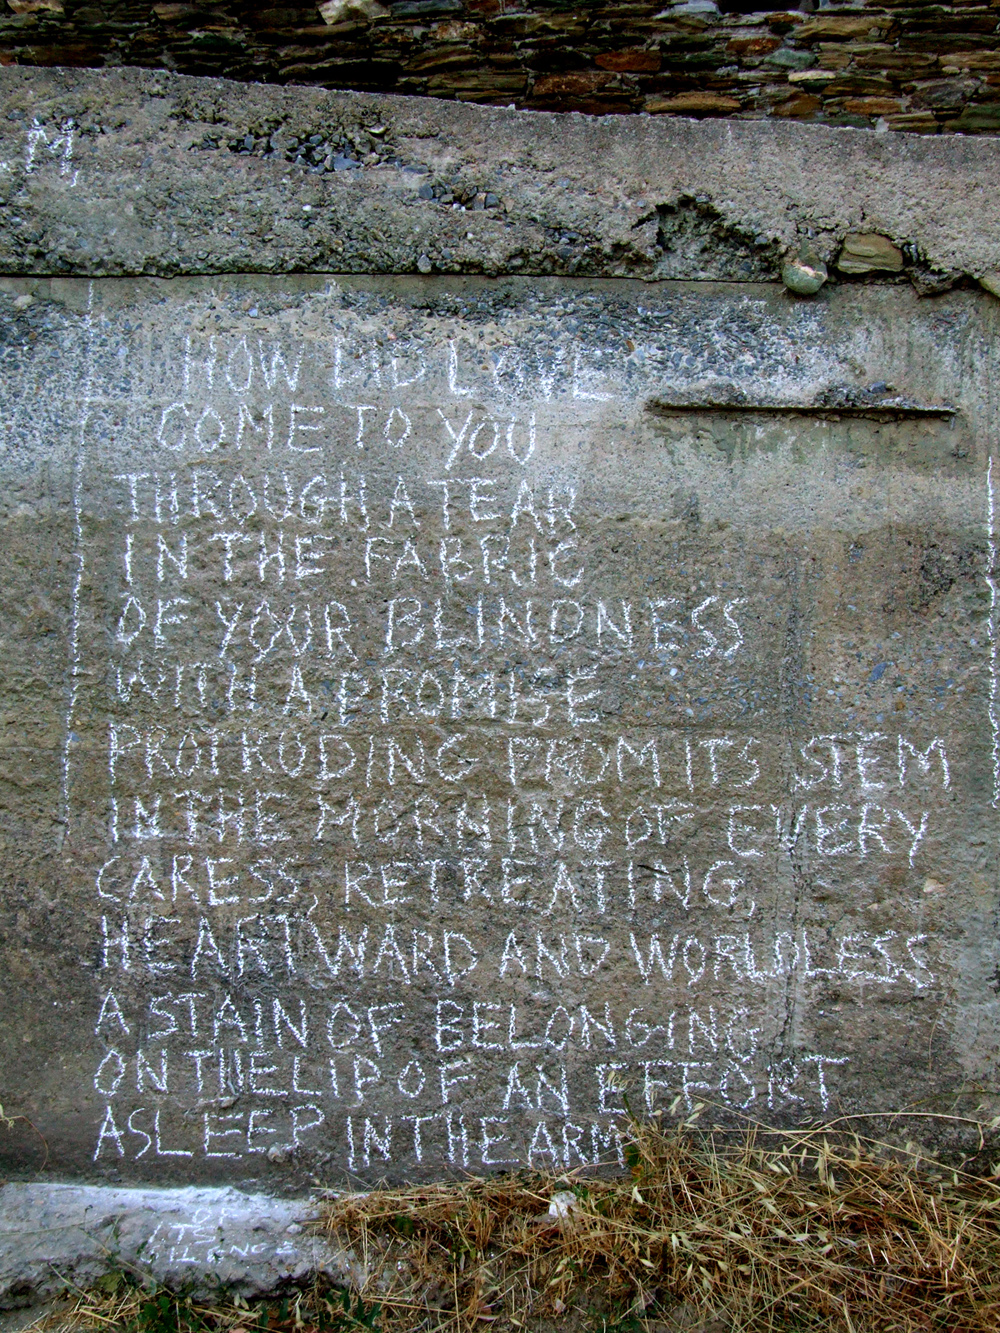 M
HOW DID LOVE
COME TO YOU
THROUGH A TEAR
IN THE FABRIC
OF YOUR BLINDNESS
WITH A PROMISE
PROTRUDING FROM ITS STEM
IN THE MORNING OF EVERY
CARESS, RETREATING,
HEARTWARD AND WORLDLESS
A STAIN OF BELONGING
ON THE LIP OF AN EFFORT
ASLEEP IN THE ARM
OF
ITS
SILENCE